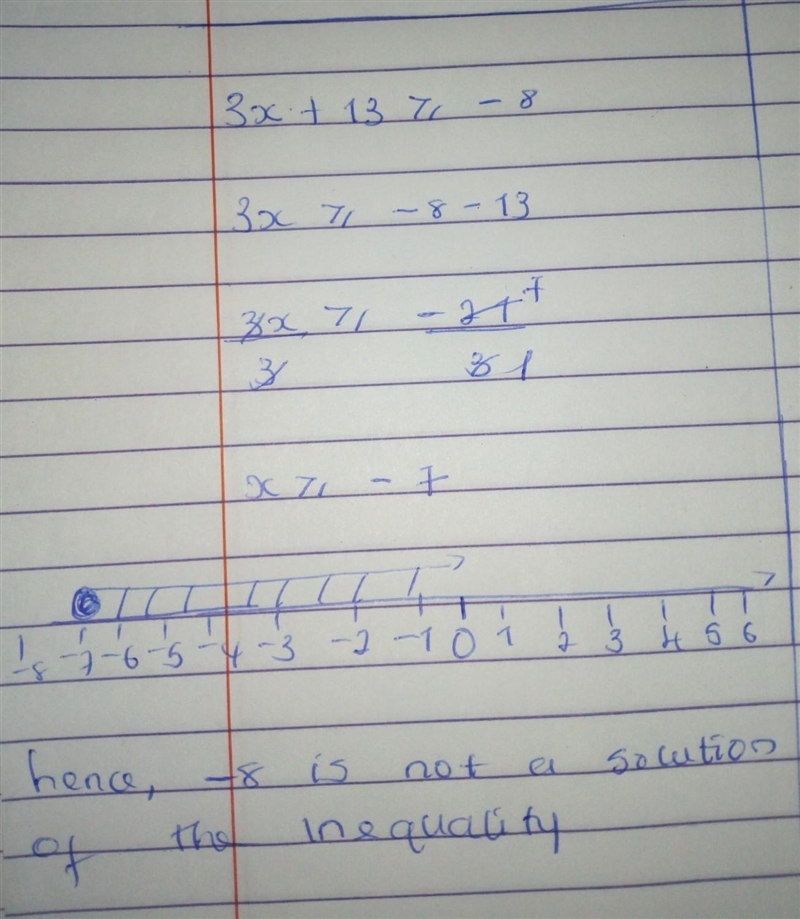 3x + 13 ⩾ - 8
3x ⩾ -8 - 13
3x ⩾ -21 7
3 3 1
x ⩾ - 7
-8 -7 -6 -5 -4 -3 -2 -1 0 1 2 3 4 5 6
hence, -8 is not a solution
of the inequality